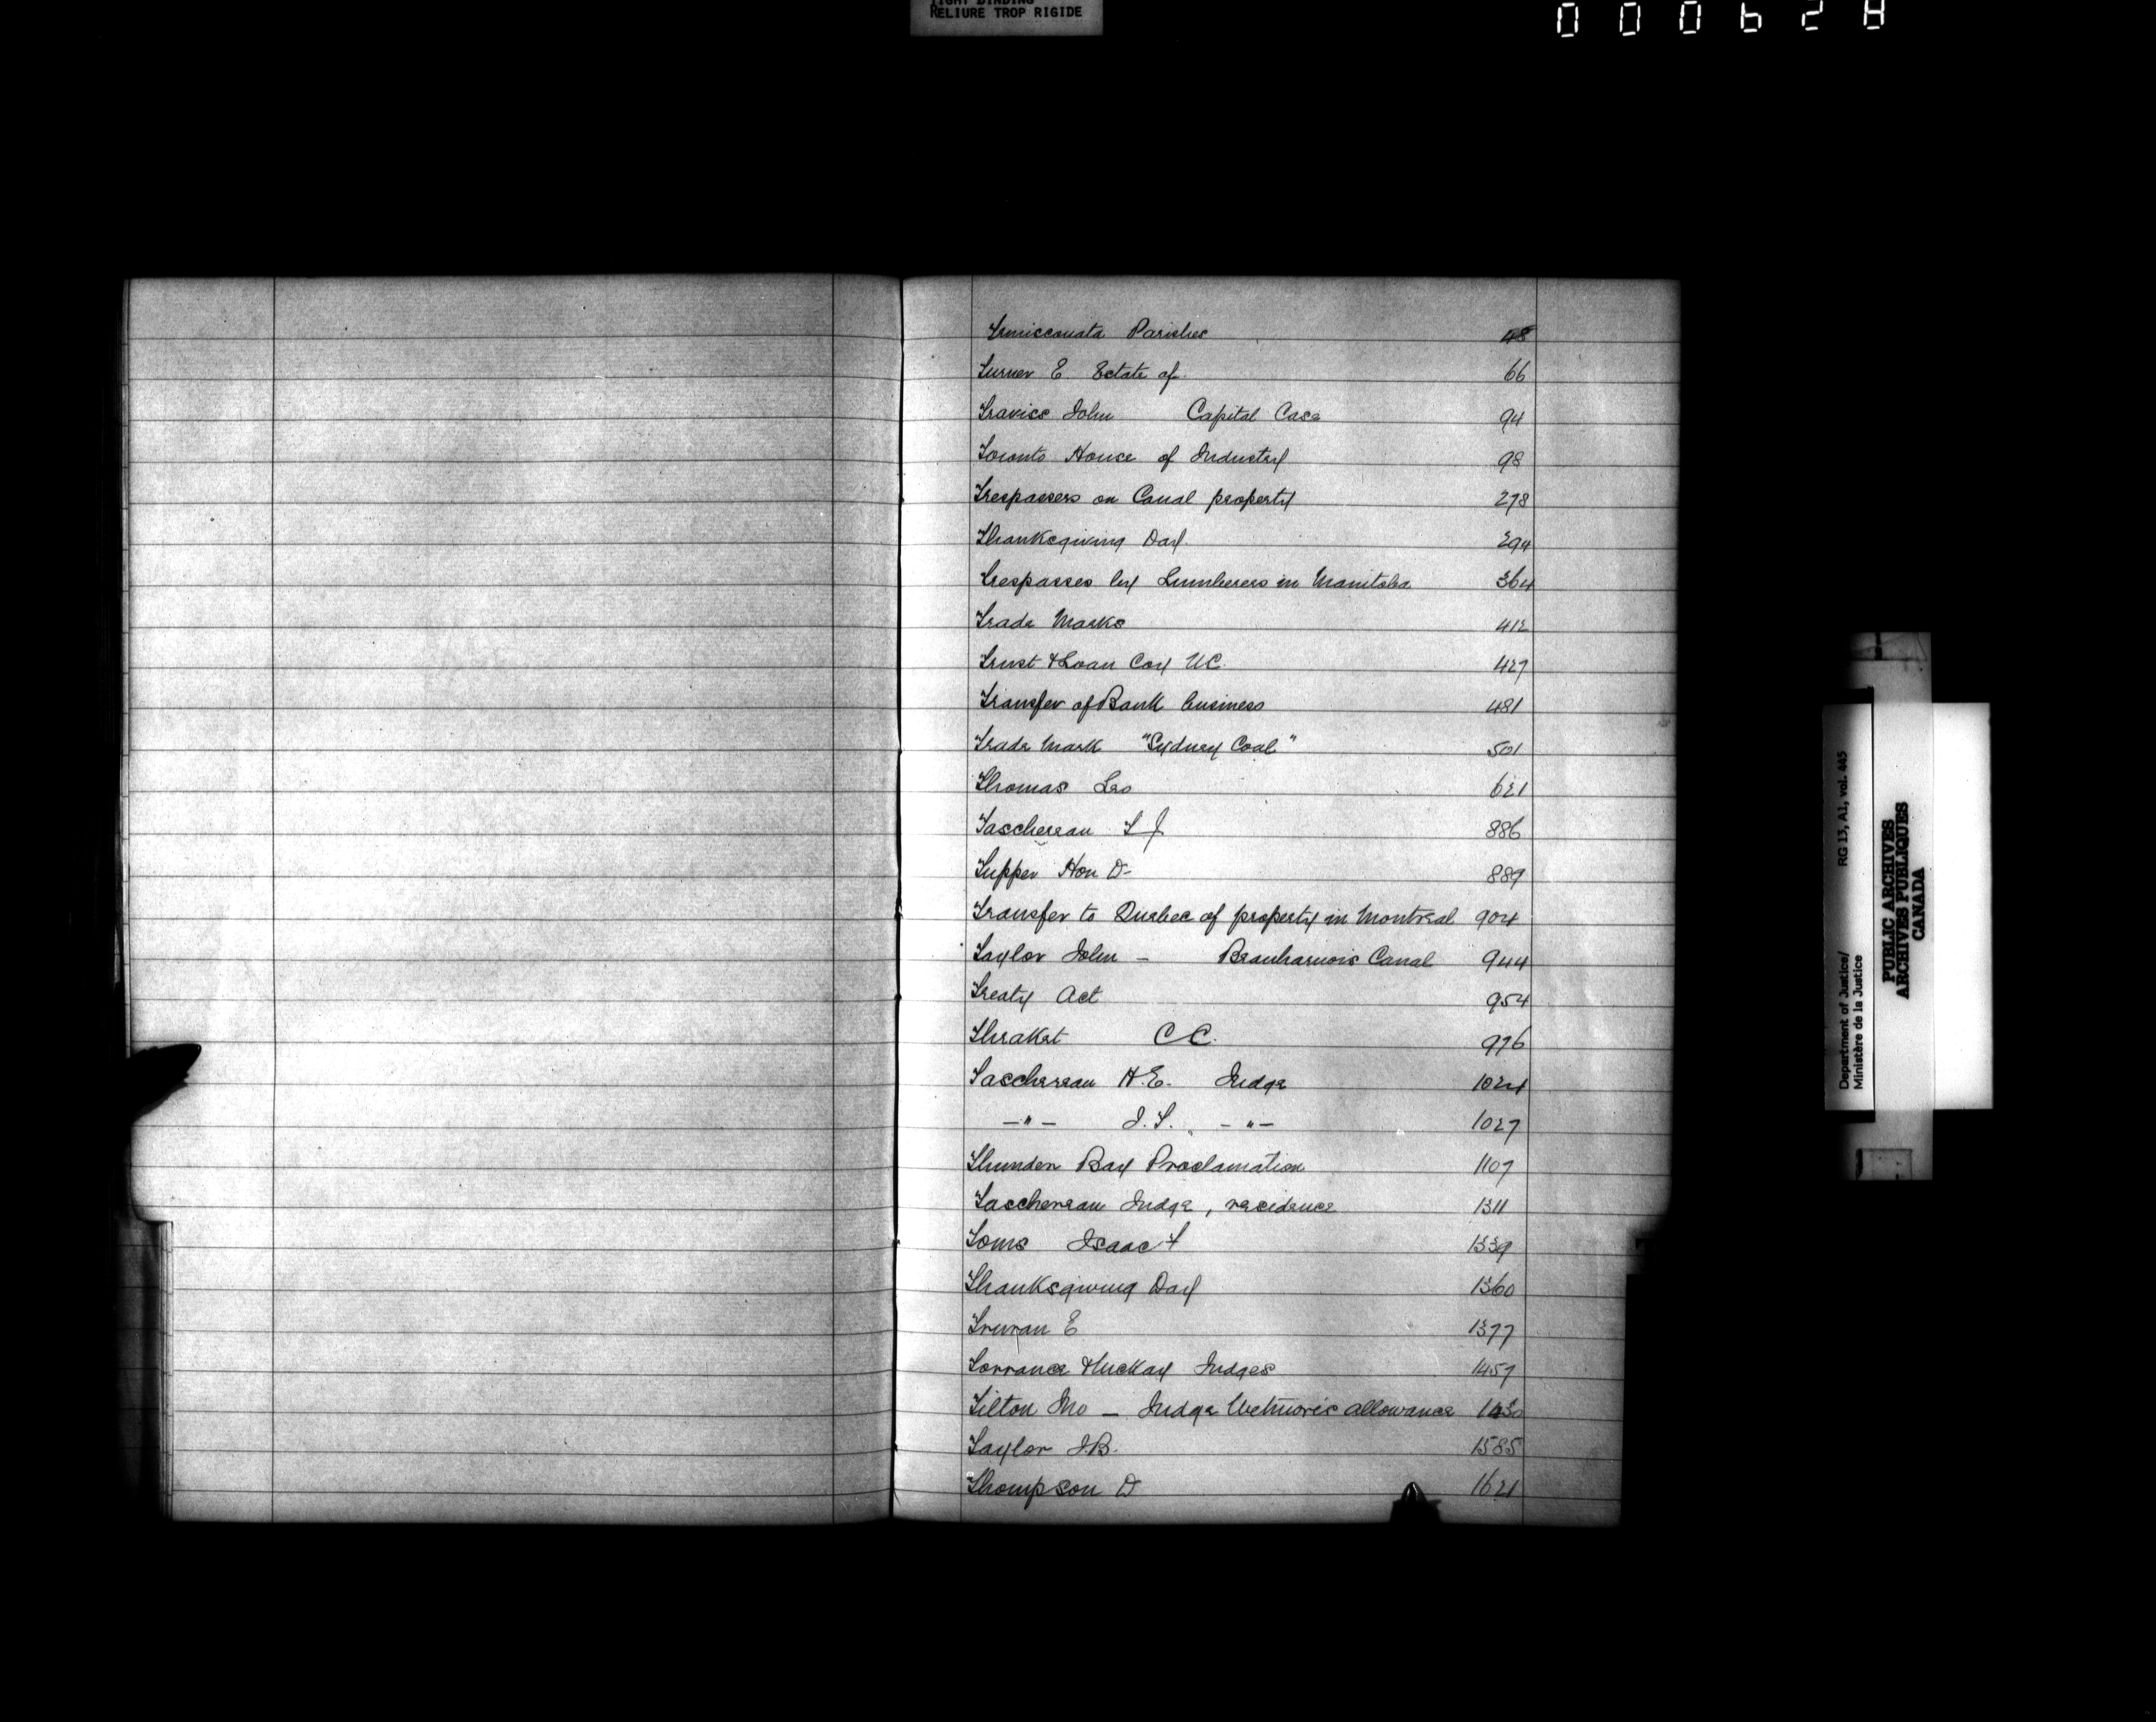 TIGHT BINDING
RELIURE TROP RIGIDE
000628
Temiscouata Parishes 48
Turner E Estate of 66
Traviss John Capital Case 94
Toronto House of Industry 98
Trespassers on Canal property 278
Thanksgiving Day. 294
Trespasses by Lumberers in Manitoba 364
Trade Marks 412
Trust & Loan Coy UC. 427
Transfer of Bank business 481
Trade Mark "Sydney Coal" 501
Thomas Leo 621
Taschereau T J 886
Tupper Hon D- 889
Transfer to Quebec of property in Montreal 904
Taylor John - Beauharnois Canal 944
Treaty Act 954
C C. 976
Taschereau H.E. Judge 1024
-"- J.T. -"- 1027
Thunder Bay Proclamation 1107
Taschereau Judge, residence 1311
Toms Isaac F 1339
Thanksgiving Day 1360
Truran E 1377
Torrance & McKay Judges 1457
Tilton Jno - Judge Wetmore's allowance
Taylor J.B. 1585
Thompson D 1621
Department of Justice/
Ministère de la Justice
RG 13, A1, vol. 445
PUBLIC ARCHIVES
ARCHIVES PUBLIQUES
CANADA